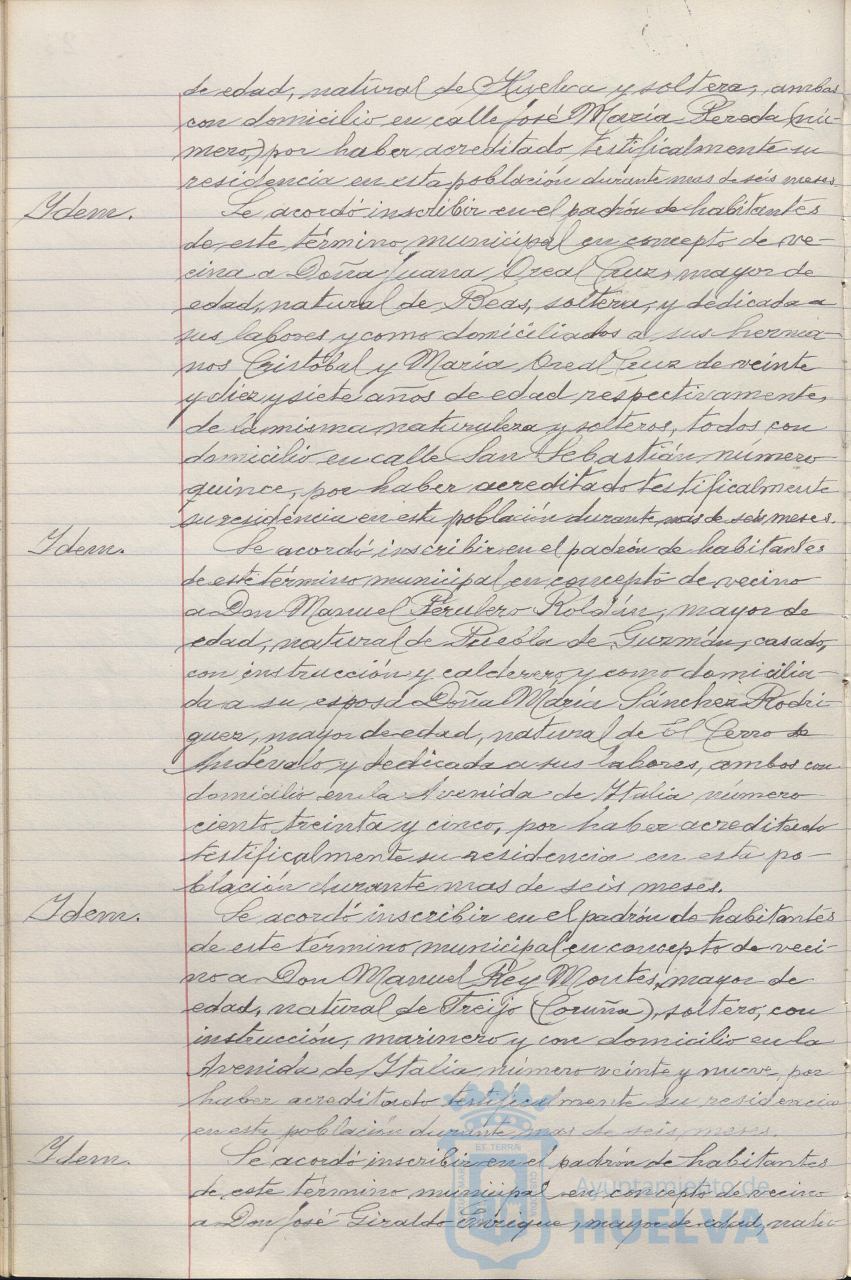 de edad, natural de Huelva y soltera, ambas
con domicilio en calle José María Pereda (nú-
mero,) por haber acreditado testificalmente su
residencia en esta población durante mas de seis meses.
Ydem.
Se acordó inscribir en el padrón de habitantes
de este término municipal en concepto de ve-
cina a Doña Juana Oreal Cruz, mayor de
edad, natural de Beas, soltera, y dedicada a
sus labores y como domiciliados a sus herma-
nos Cristobal y María Oreal Cruz de veinte
y diez y siete años de edad respectivamente,
de la misma naturaleza y solteros, todos con
domicilio en calle San Sebastián número
quince, por haber acreditado testificalmente
su residencia en esta población durante mas de seis meses.
Ydem.
Se acordó inscribir en el padrón de habitantes
de este término municipal en concepto de vecino
a Don Manuel Perulero Roldán, mayor de
edad, natural de Puebla de Guzmán, casado,
con instrucción y calderero y como domicilia-
da a su esposa Doña María Sánchez Rodri-
guez, mayor de edad, natural de El Cerro de
Andévalo y dedicada a sus labores, ambos con
domicilio en la Avenida de Italia número
ciento treinta y cinco, por haber acreditado
testificalmente su residencia en esta po-
blación durante mas de seis meses.
Ydem.
Se acordó inscribir en el padrón de habitantes
de este término municipal en concepto de veci-
no a Don Manuel Rey Montes, mayor de
edad, natural de Treijo (Coruña), soltero, con
instrucción, marinero y con domicilio en la
Avenida de Italia número veinte y nueve, por
haber acreditado testificalmente su residencia
en esta población durante mas de seis meses.
Ydem.
Se acordó inscribir en el padrón de habitantes
de este término municipal en concepto de vecino
a Don José Giraldo Enrique, mayor de edad, natu-
Ayuntamiento de
HUELVA